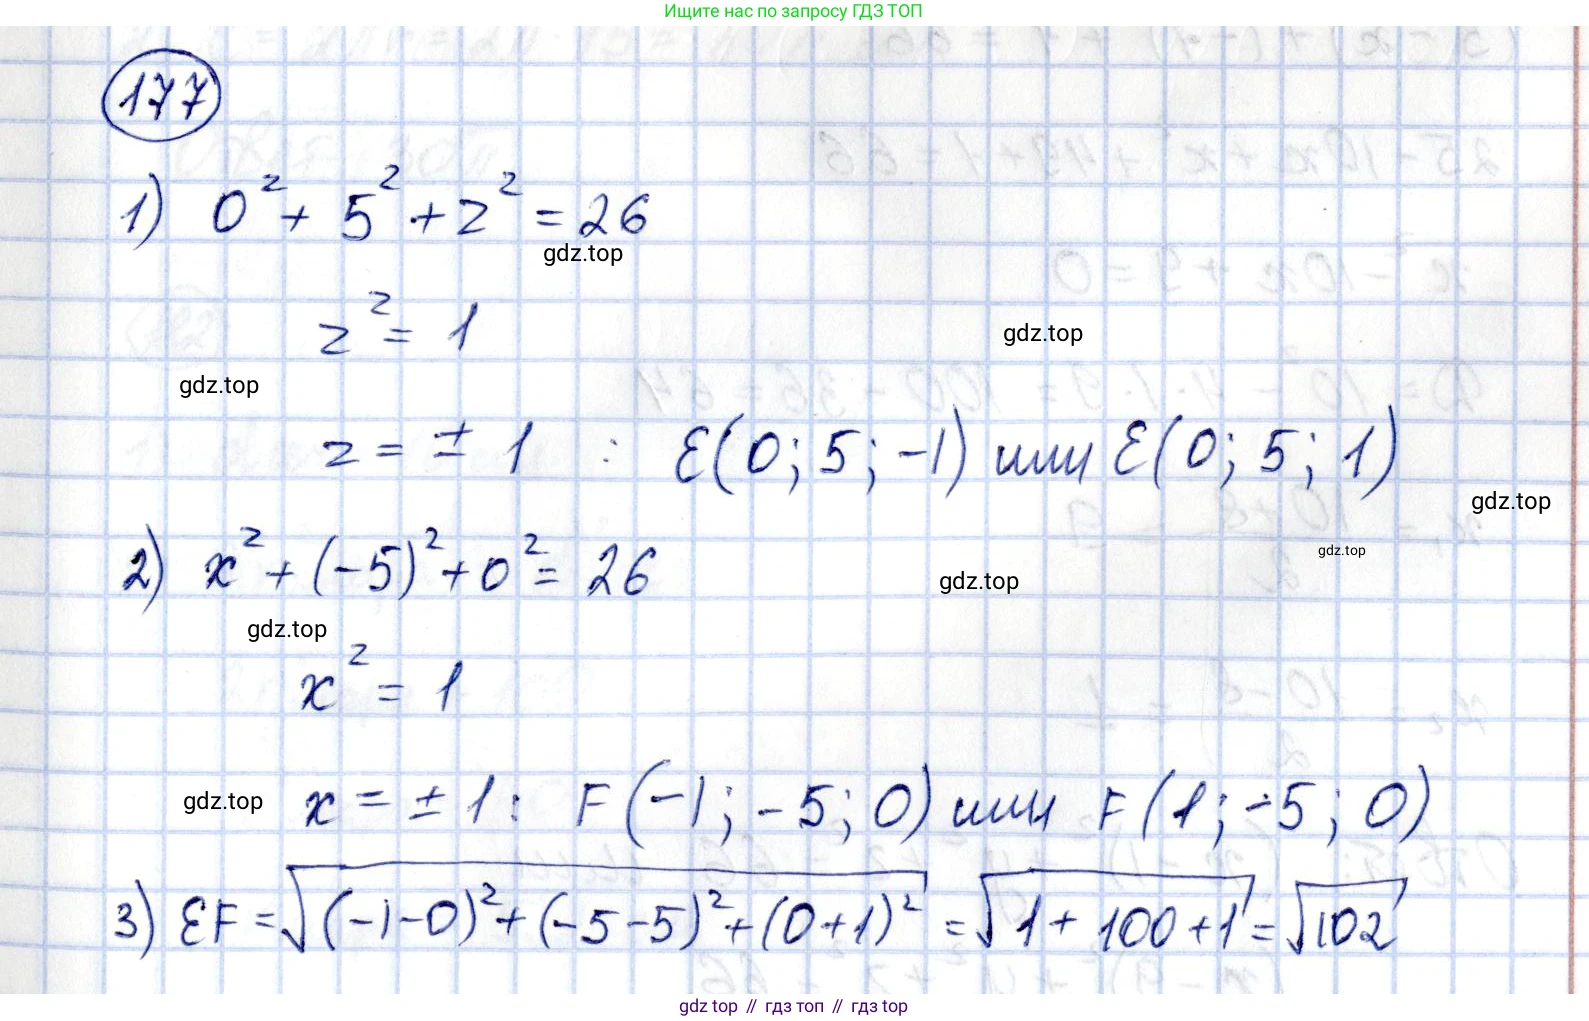 Ищите нас по запросу ГДЗ ТОП
177
1) 0² + 5² + z² = 26
gdz.top
z² = 1
gdz.top
gdz.top
z = ± 1 : E(0; 5; -1) или E(0; 5; 1)
gdz.top
2) x² + (-5)² + 0² = 26
gdz.top
gdz.top
gdz.top
x² = 1
gdz.top
x = ± 1: F(-1; -5; 0) или F(1; -5; 0)
3) EF = √((-1-0)² + (-5-5)² + (0+1)²) = √(1 + 100 + 1) = √102
gdz top // гдз топ // гдз top